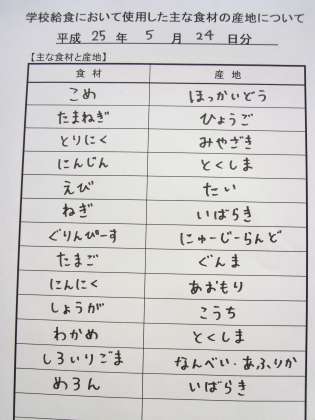 学校給食において使用した主な食材の産地について
平成 25 年 5 月 24 日分
【主な食材と産地】
食材 産地
こめ ほっかいどう
たまねぎ ひょうご
とりにく みやざき
にんじん とくしま
えび たい
ねぎ いばらき
ぐりんぴーす にゅーじーらんど
たまご ぐんま
にんにく あおもり
しょうが こうち
わかめ とくしま
しろいりごま なんべい・あふりか
めろん いばらき